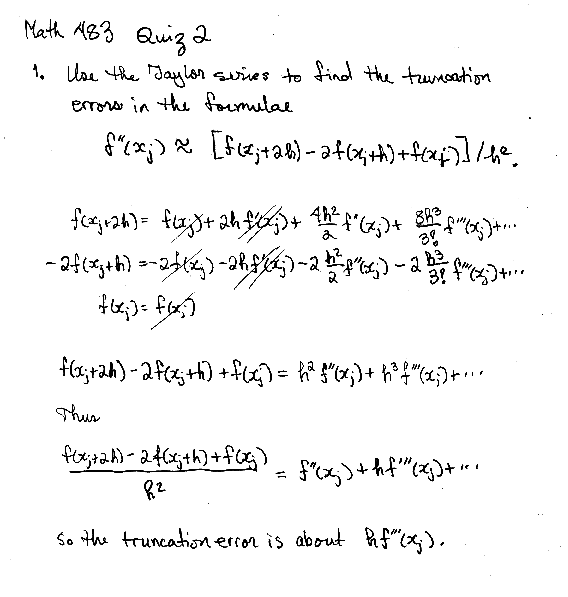 Math 483 Quiz 2
1. Use the Taylor series to find the truncation
errors in the formulae
f''(x_j) ≈ [f(x_j+2h) - 2f(x_j+h) + f(x_j)] / h².
f(x_j+2h) = f(x_j) + 2h f'(x_j) + 4h²/2 f''(x_j) + 8h³/3! f'''(x_j) + ...
-2f(x_j+h) = -2f(x_j) - 2h f'(x_j) - 2 h²/2 f''(x_j) - 2 h³/3! f'''(x_j) + ...
f(x_j) = f(x_j)
f(x_j+2h) - 2f(x_j+h) + f(x_j) = h² f''(x_j) + h³ f'''(x_j) + ...
Thus
f(x_j+2h) - 2f(x_j+h) + f(x_j) / h² = f''(x_j) + h f'''(x_j) + ...
so the truncation error is about h f'''(x_j).